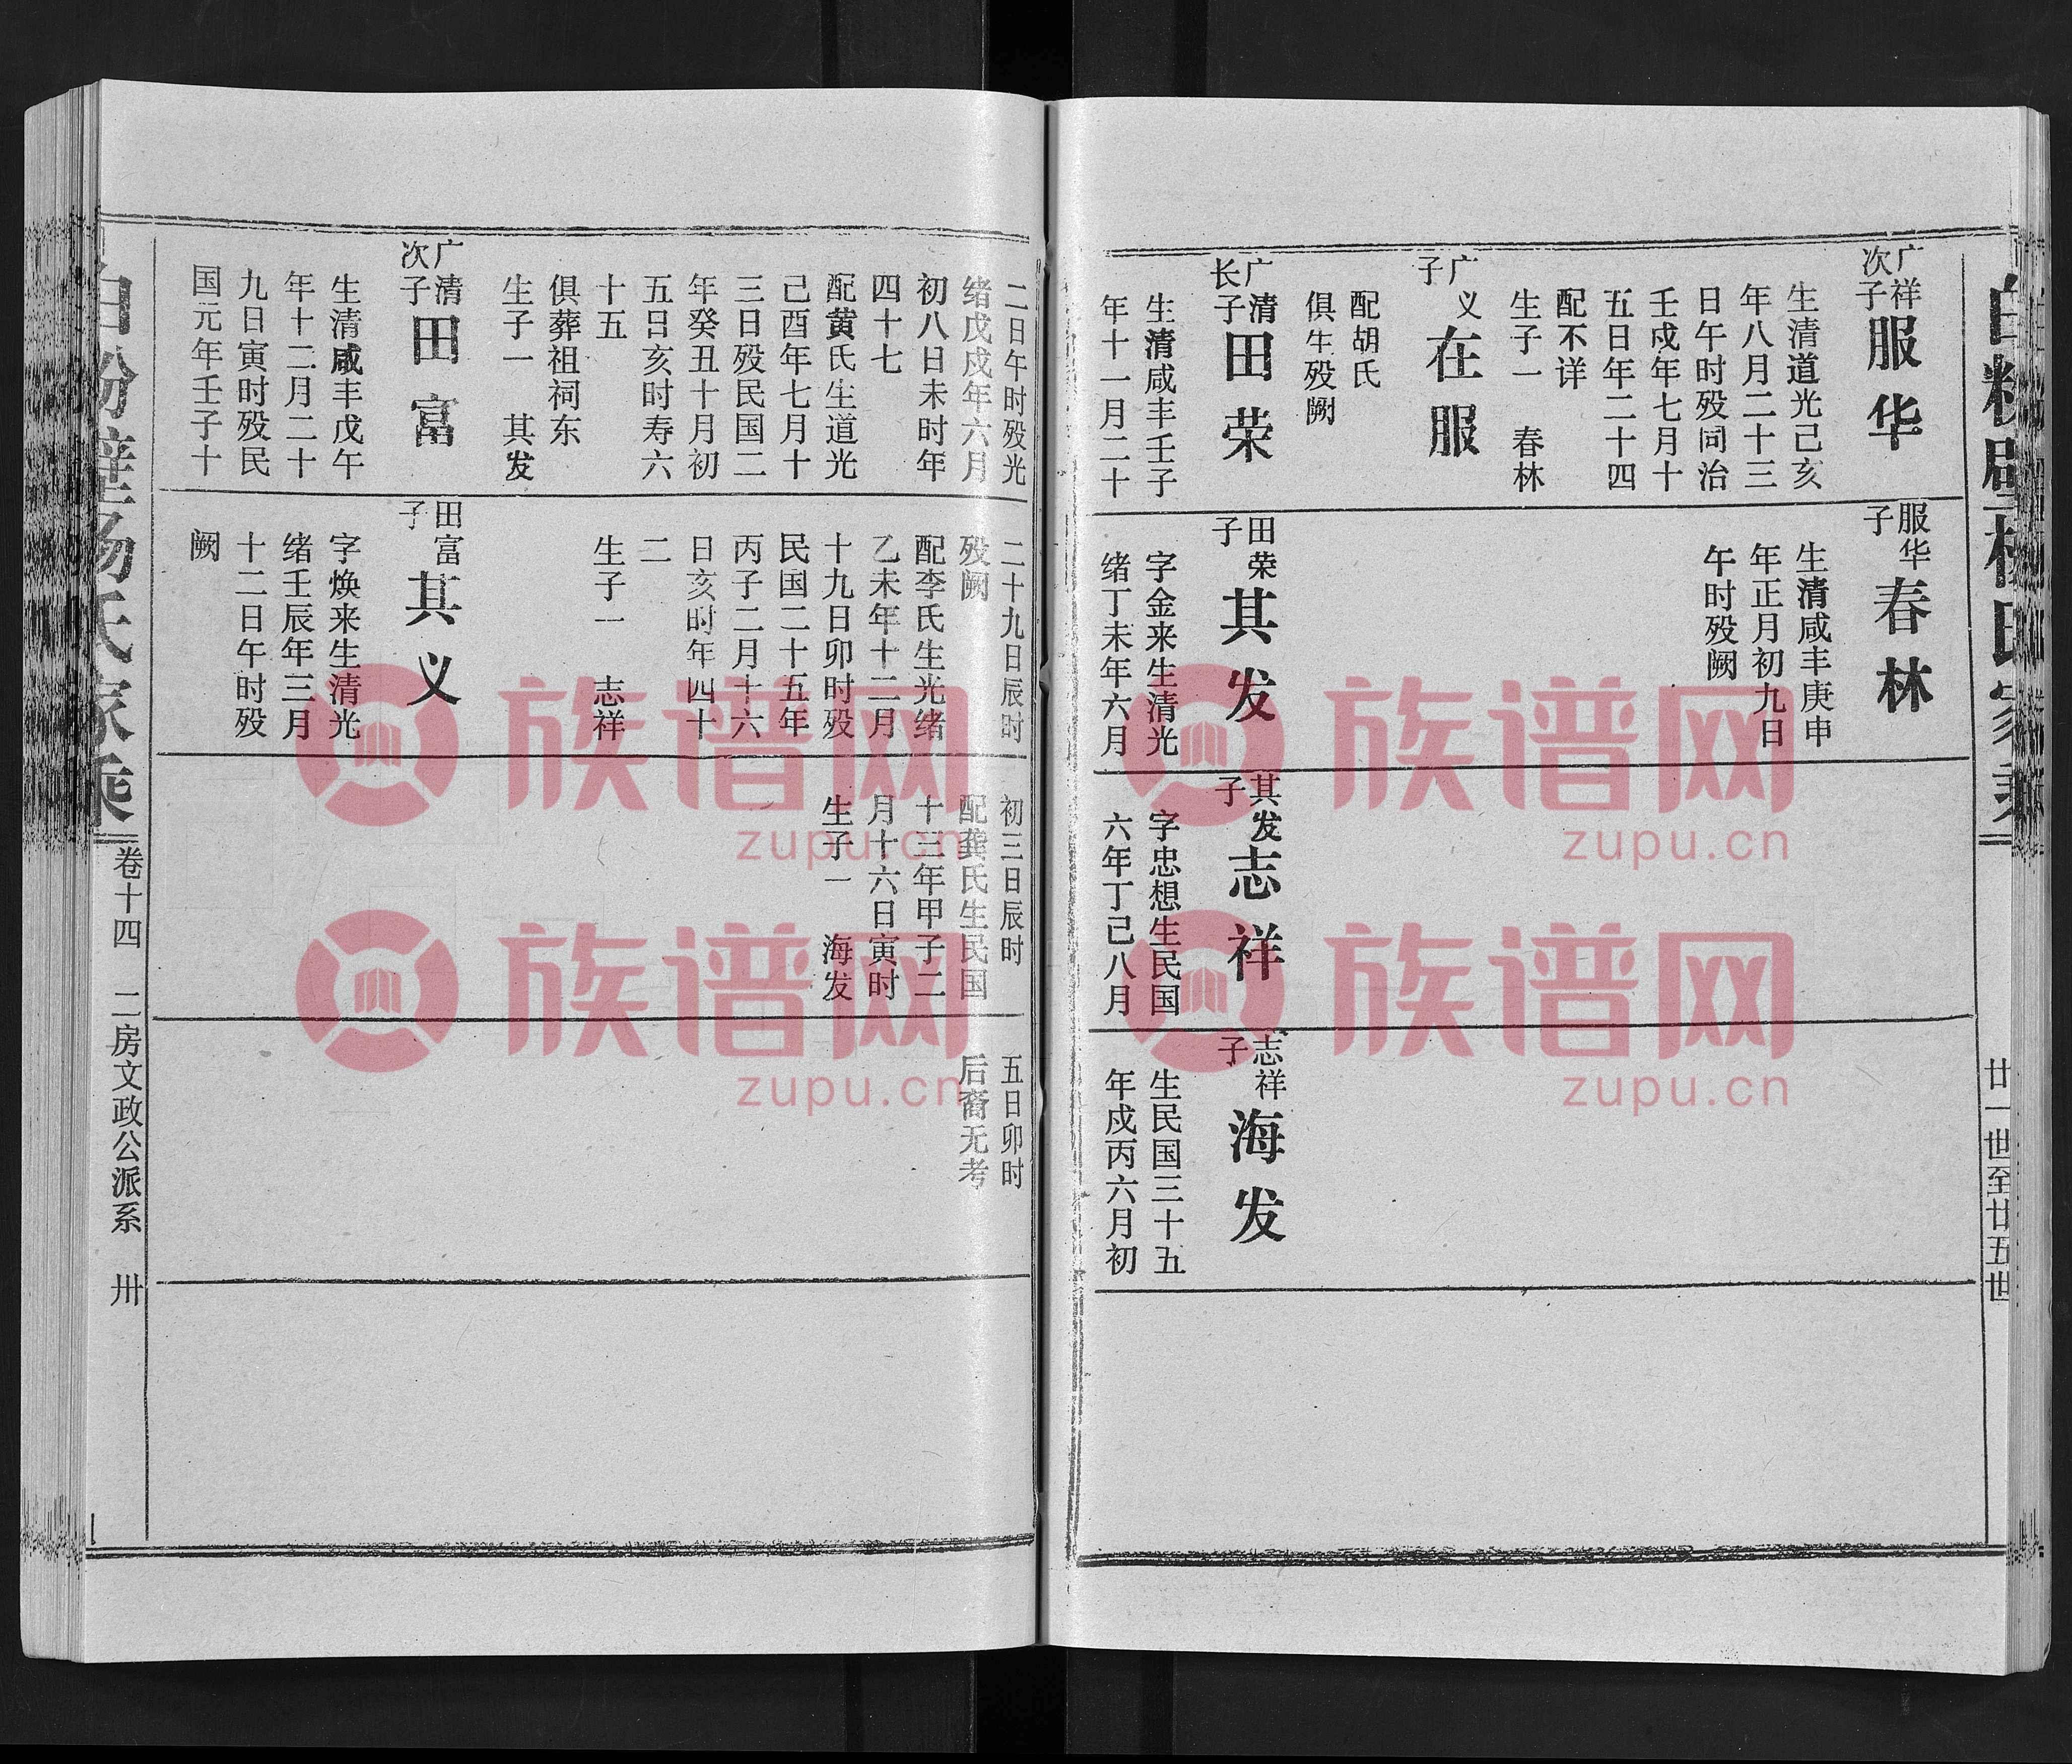 白粉壁杨氏家乘
廿一世至廿五世
广祥
次子
服华
生清道光己亥
年八月二十三
日午时殁同治
壬戌年七月十
五日年二十四
配不详
生子一 春林
广义
子
在服
配胡氏
俱生殁阙
广清
长子
田荣
生清咸丰壬子
年十一月二十
服华
子
春林
生清咸丰庚申
年正月初九日
午时殁阙
田荣
子
其发
字金来生清光
绪丁未年六月
其发
子
志祥
字忠想生民国
六年丁己八月
志祥
子
海发
生民国三十五
年戌丙六月初
二日午时殁光
绪戊戌年六月
初八日未时年
四十七
配黄氏生道光
己酉年七月十
三日殁民国二
年癸丑十月初
五日亥时寿六
十五
俱葬祖祠东
生子一 其发
广清
次子
田富
生清咸丰戊午
年十二月二十
九日寅时殁民
国元年壬子十
二十九日辰时
殁阙
配李氏生光绪
乙未年十二月
十九日卯时殁
民国二十五年
丙子二月十六
日亥时年四十
二
生子一 志祥
田富
子
其义
字焕来生清光
绪壬辰年三月
十二日午时殁
阙
初三日辰时
配龚氏生民国
十三年甲子二
月十六日寅时
生子一 海发
五日卯时
后裔无考
白粉壁杨氏家乘
卷十四 二房文政公派系 卅
族谱网
zupu.cn
族谱网
zupu.cn
族谱网
zupu.cn
族谱网
zupu.cn